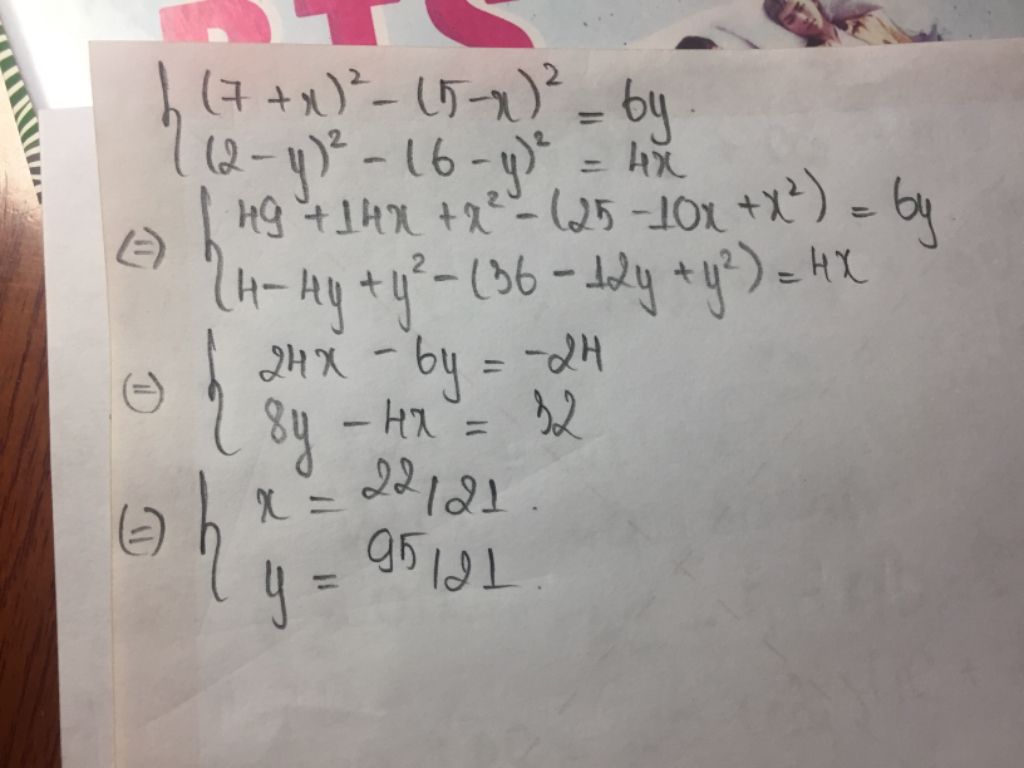 RTS
{ (7 + x)² - (5 - x)² = 6y.
(2 - y)² - (6 - y)² = 4x
(=) { 49 + 14x + x² - (25 - 10x + x²) = 6y.
4 - 4y + y² - (36 - 12y + y²) = 4x
(=) { 24x - 6y = -24
8y - 4x = 32
(=) { x = 22/21.
y = 95/21.